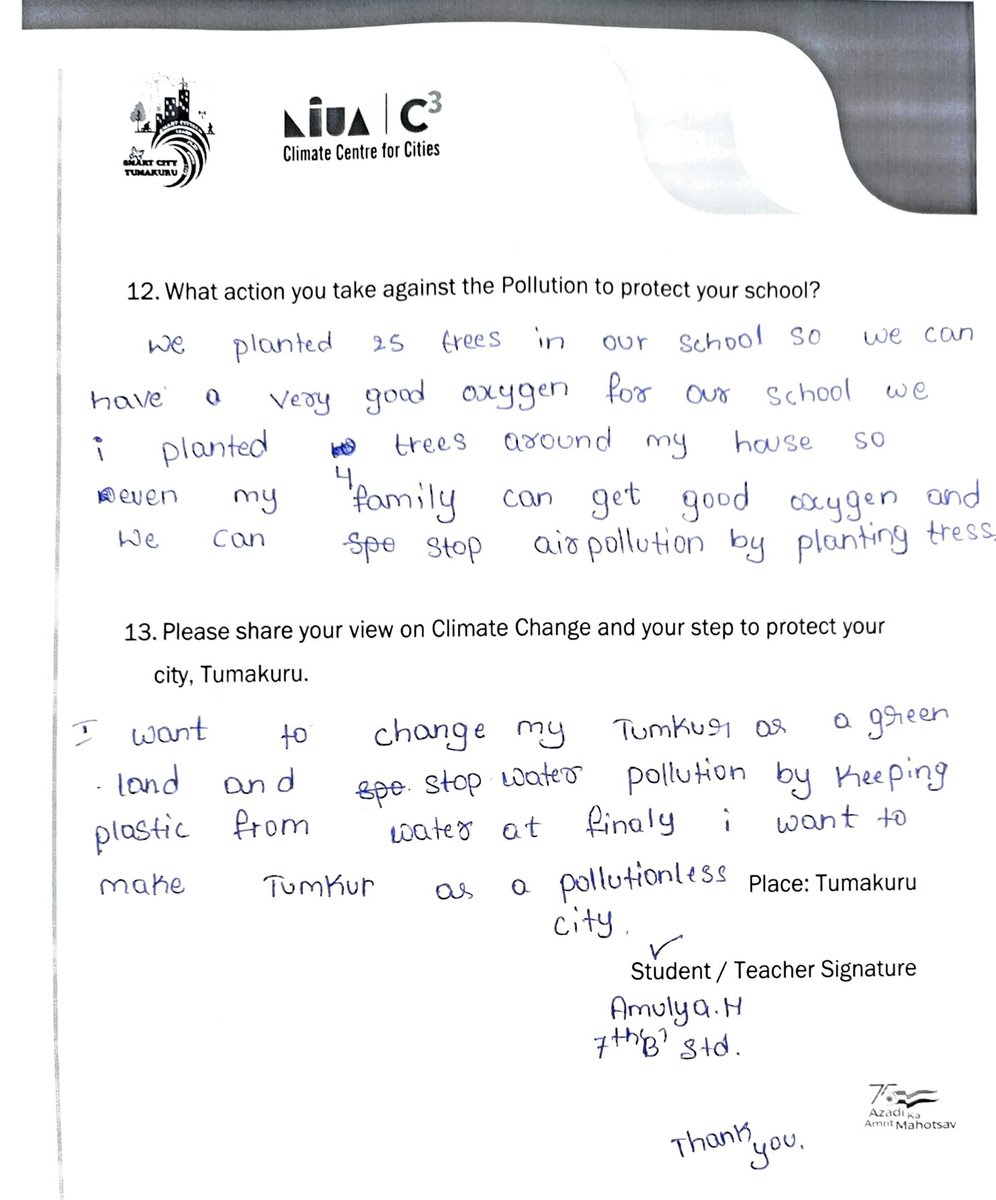 SMART CITY
TUMAKURU
NIUA | C³
Climate Centre for Cities
12. What action you take against the Pollution to protect your school?
we planted 25 trees in our school so we can
have a very good oxygen for our school we
i planted trees around my house so
4
even my family can get good oxygen and
we can spo stop airpollution by planting tress.
13. Please share your view on Climate Change and your step to protect your
city, Tumakuru.
I want to change my Tumkur as a green
land and spo stop water pollution by keeping
plastic from water at finaly i want to
make Tumkur as a pollutionless
city.
Place: Tumakuru
Student / Teacher Signature
Amulya.H
7th 'B' Std.
75
Azadi Ka
Amrit Mahotsav
Thank you.